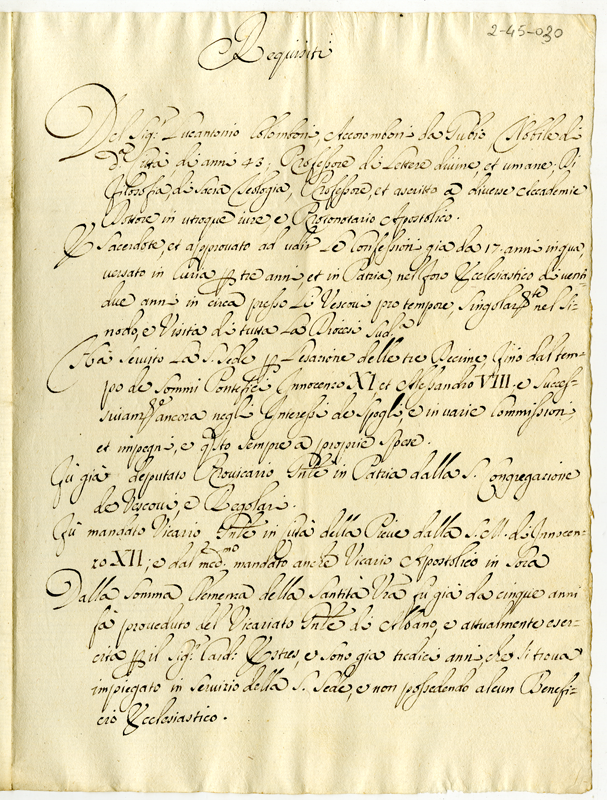 2-45-030
Requisiti
Del Sig.r Lucantonio Colomboni, Accoromboni da Gubio Nobile di
d.a Città, di anni 43; Professore di Lettere divine, et umane; Di
Filosofia, di Sacra Teologia, Professore, et ascritto a diverse Accademie
Dottore in utroque iure e Protonotario Apostolico.
È Sacerdote, et approvato ad udir Le Confessioni già da 17. anni in qua,
versato in Curia p tre anni, et in Patria, nel foro Ecclesiastico di venti
due anni in circa presso Li Vescovi pro tempore Singolarm.te nel Si=
nodo, e Visita di tutta La Diocesi Sud.a
Ha Servito La S. Sede p L'esazione delle tre Decime, fino dal tem=
po de Sommi Pontefici Innocenzo XI et Alessandro VIII. e Succes=
sivam.te ancora negli Interessi de Spogli e in varie Commissioni,
et impegni, e q.sto sempre a proprie Spese.
Fù già deputato Provicario Gn̄le in Patria dalla S. Congregazione
de Vescovi, e Regolari.
Fù mandato Vicario Gn̄le in Città della Pieve dalla S. M. di Innocen=
zo XII; e dal med.mo mandato anche Vicario Apostolico in Sora
Dalla Somma Clemenza della Santità Vr̄a fu già da cinque anni
fà proveduto del Vicariato Gn̄le di Albano, e attualmente eser=
cita p il Sig.r Card: Estrées, e sono già tredici anni, che si trova
impiegato in Servizio della S. Sede, e non possedendo alcun Benefi=
cio Ecclesiastico.